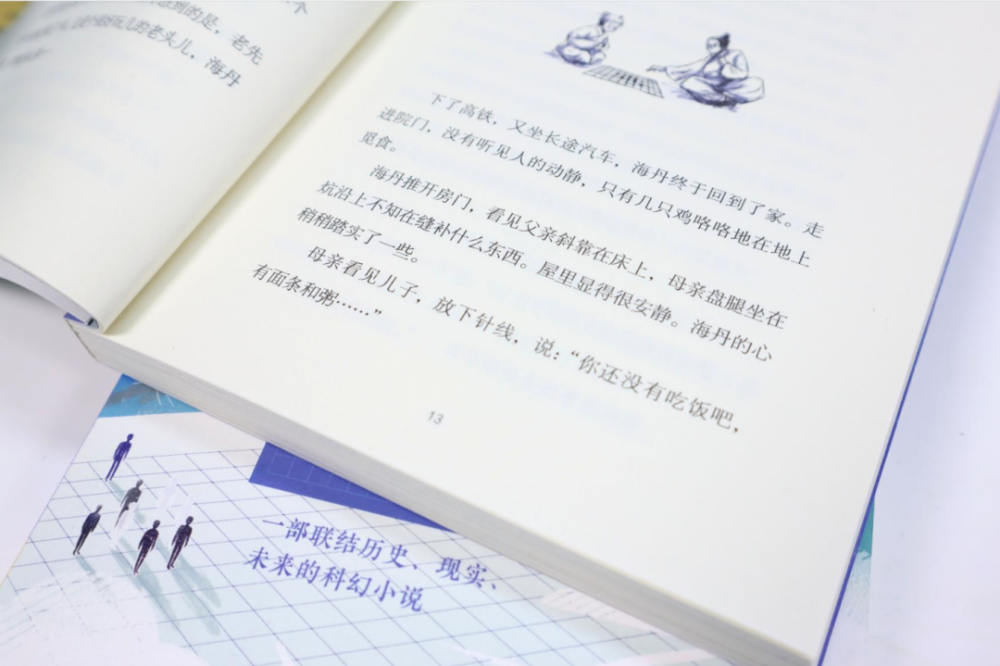 个
到的是，老先
儿的老头儿，海丹
下了高铁，又坐长途汽车，海丹终于回到了家。走
进院门，没有听见人的动静，只有几只鸡咯咯地在地上
觅食。
海丹推开房门，看见父亲斜靠在床上，母亲盘腿坐在
炕沿上不知在缝补什么东西。屋里显得很安静。海丹的心
稍稍踏实了一些。
母亲看见儿子，放下针线，说：“你还没有吃饭吧，
有面条和粥……”
13
一部联结历史、现实、
未来的科幻小说